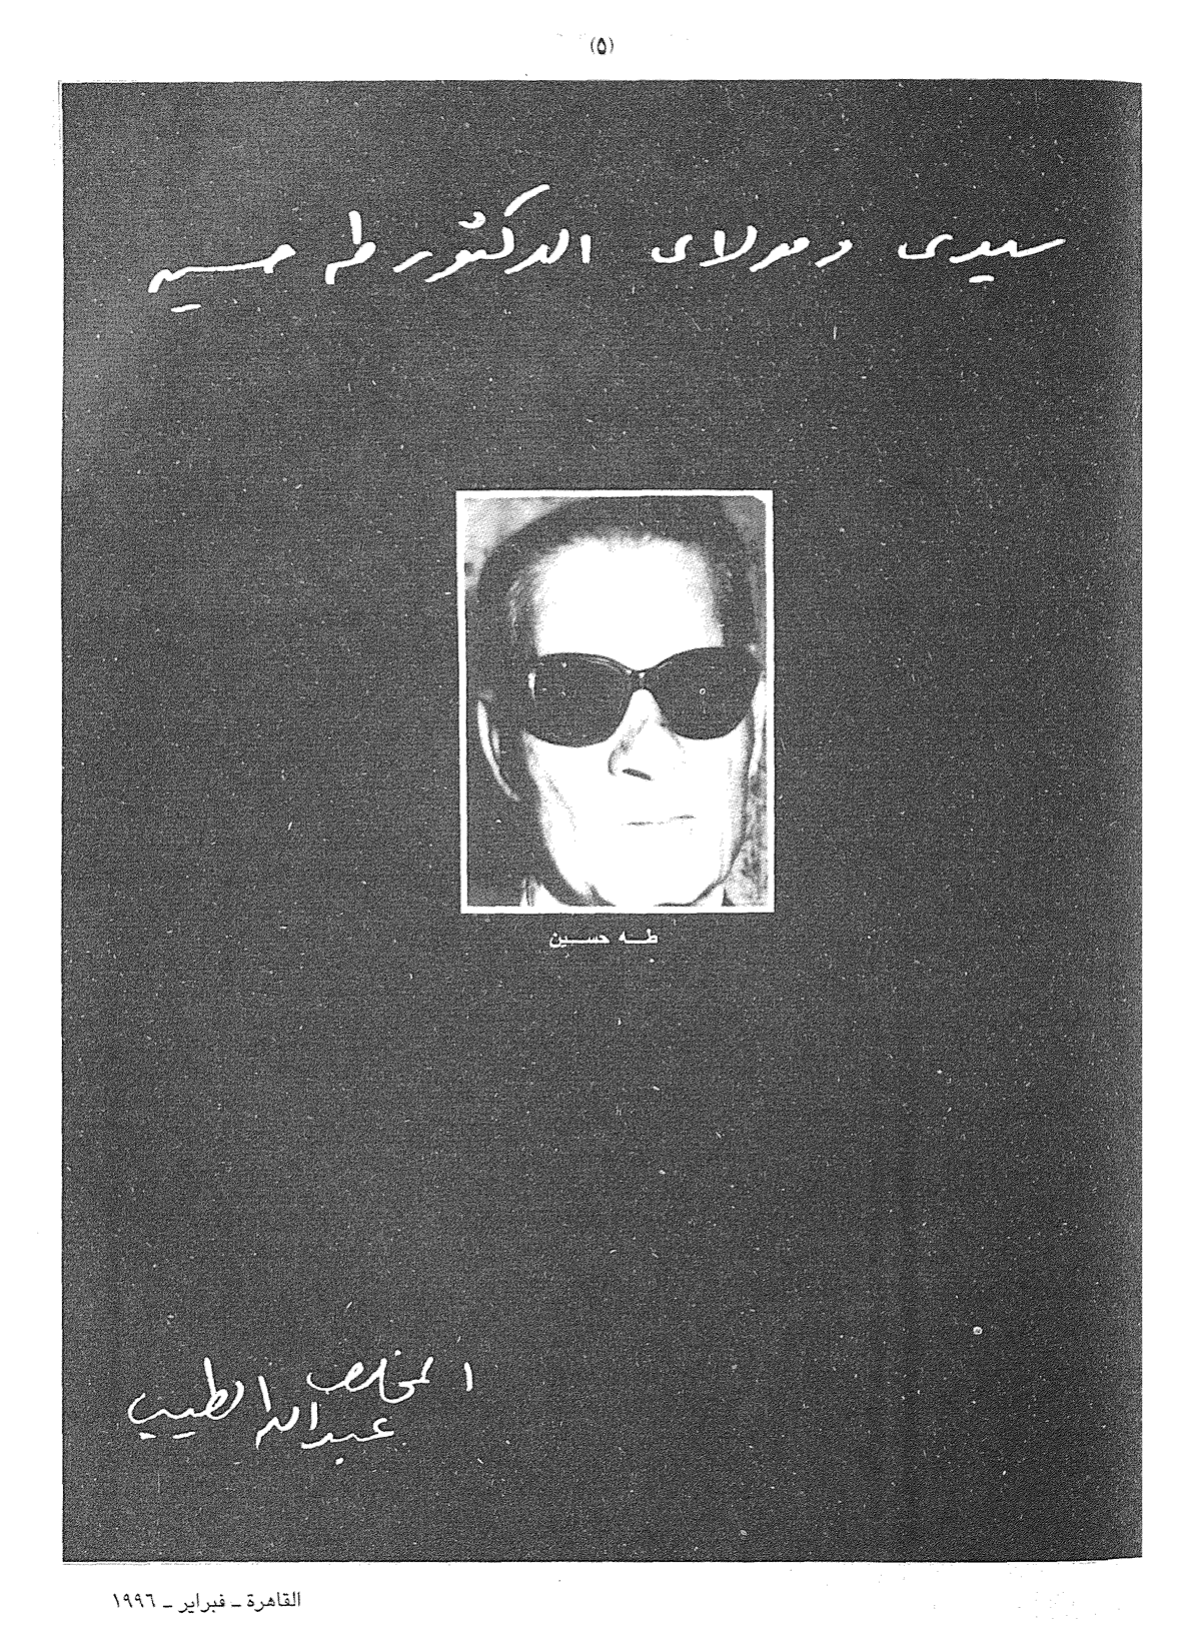 (٥)
سيدى ومولاى الدكتور طه حسين
طـه حسـين
المخلص
عبدالله الطيب
القاهرة ـ فبراير ـ ١٩٩٦